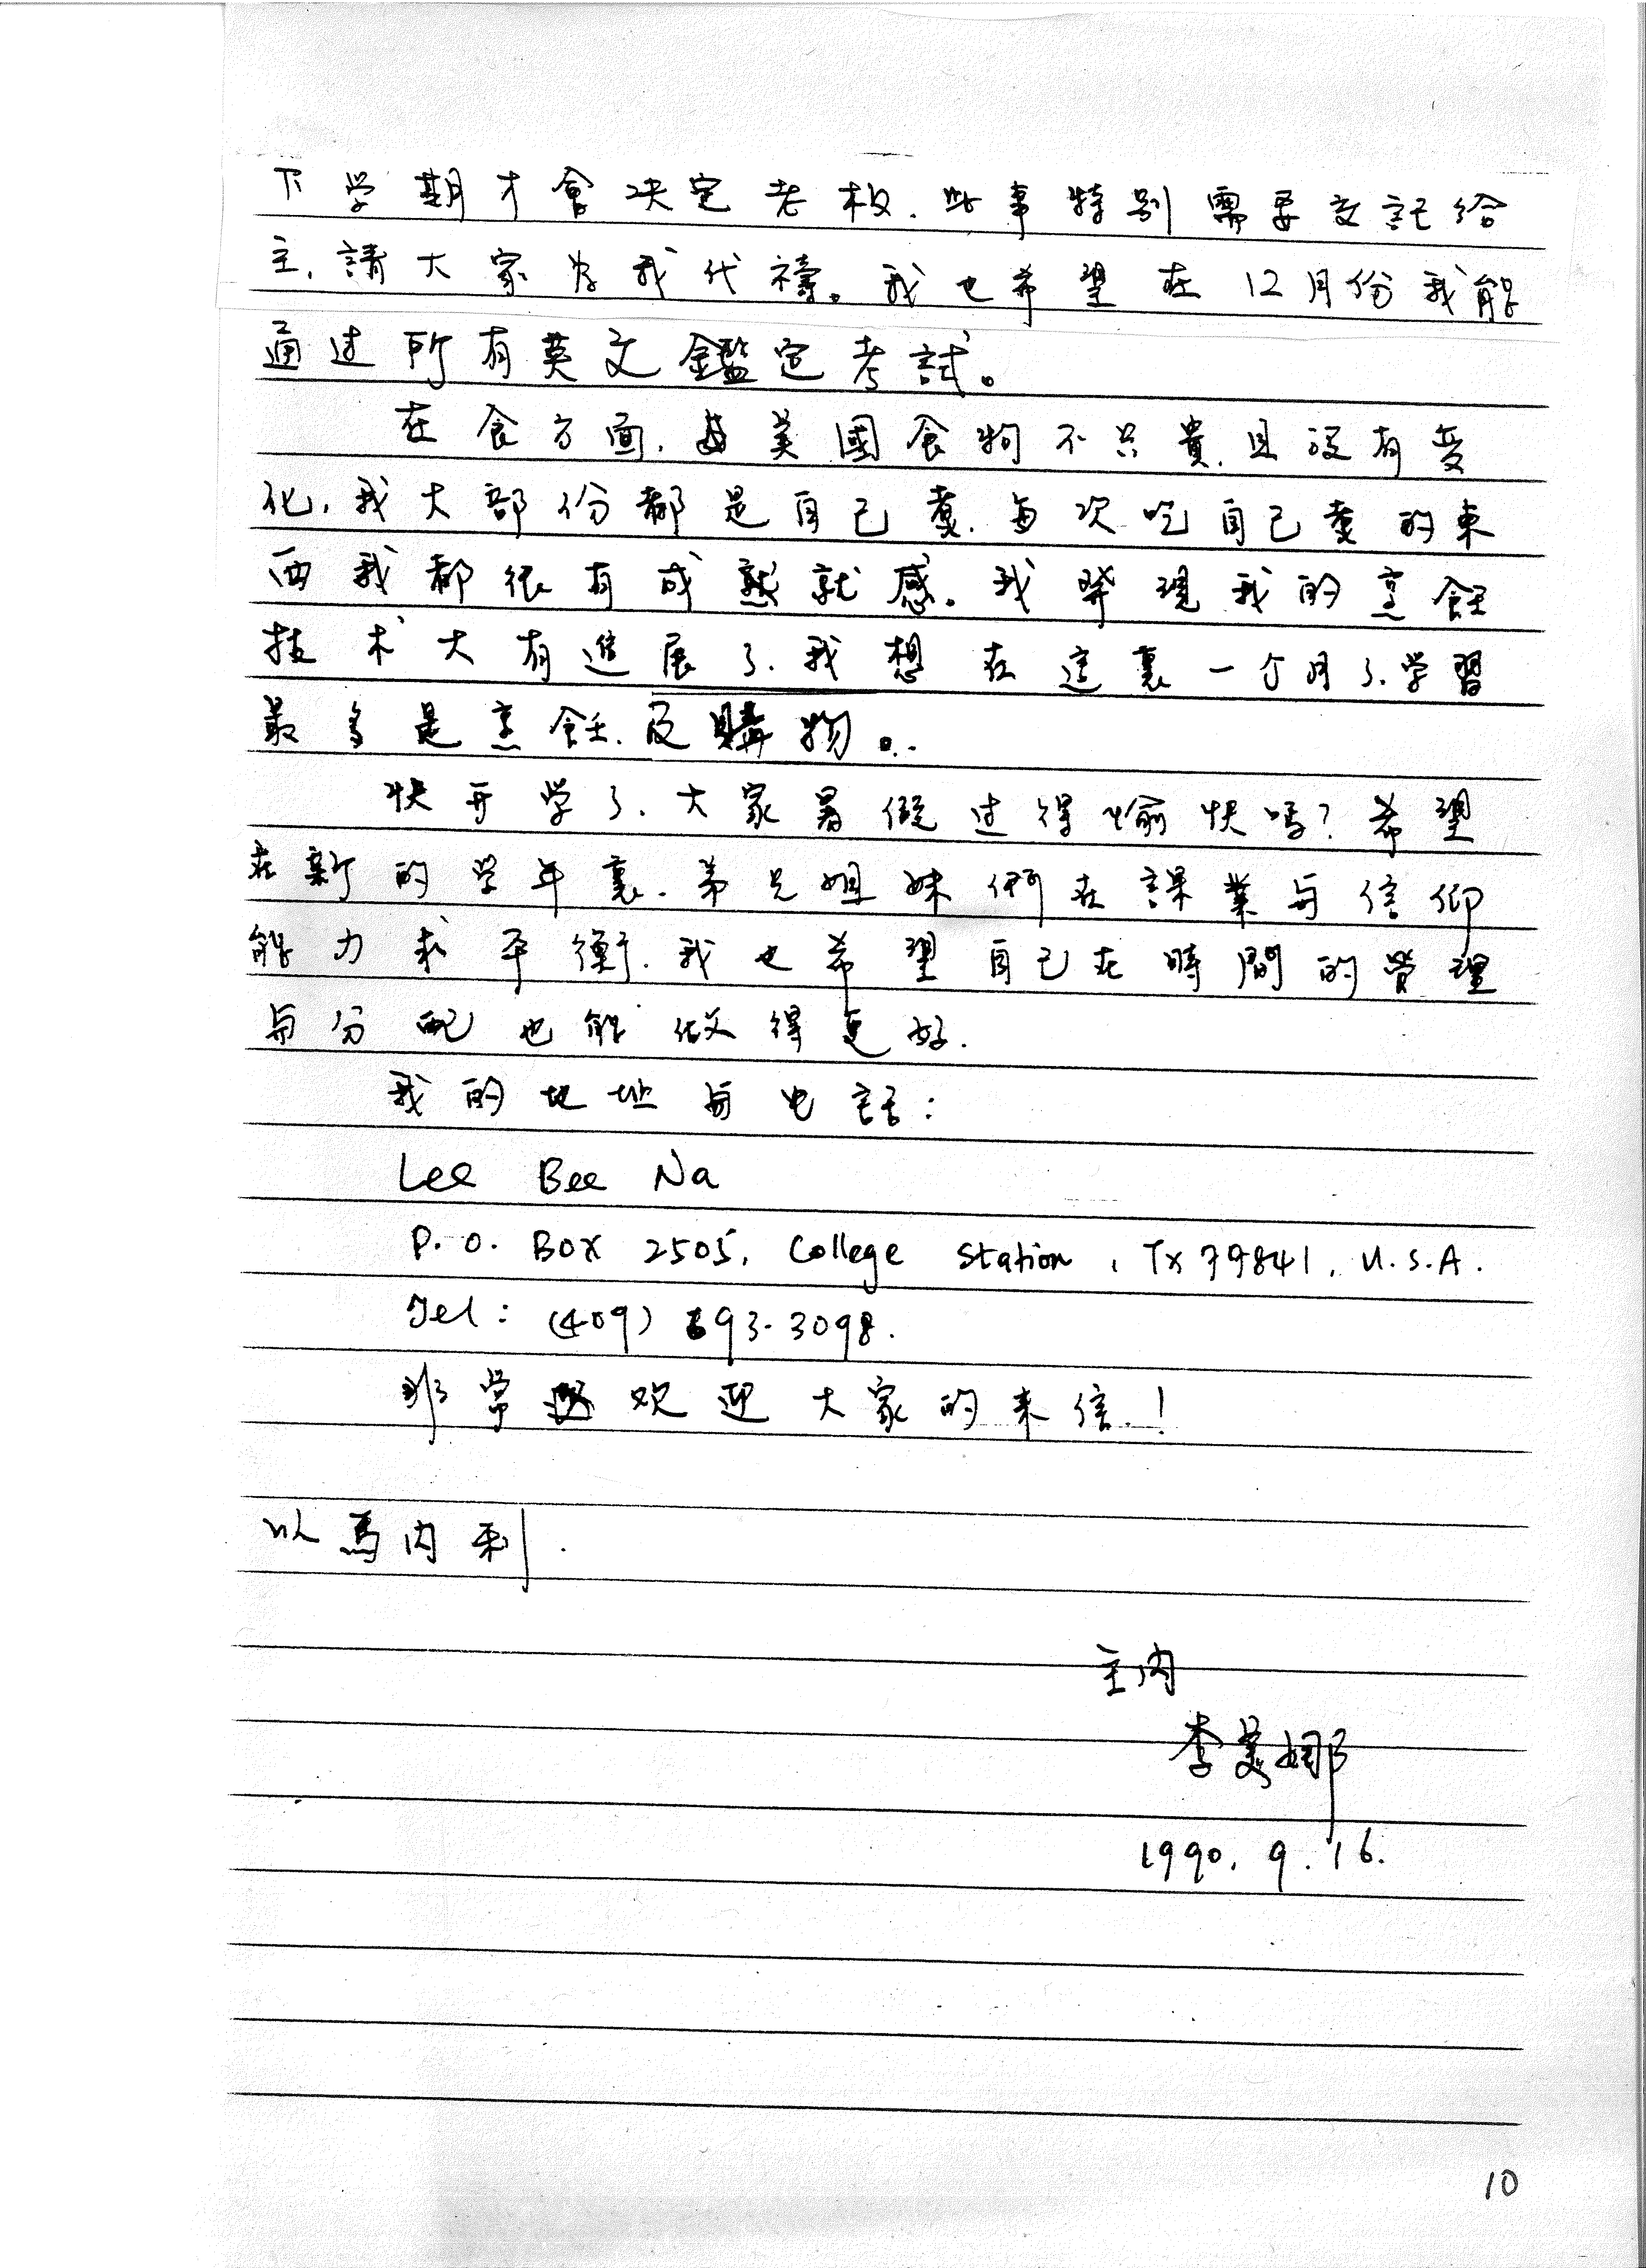 下学期才會决定老板.此事特别需要交託給
主,請大家为我代禱。我也希望在12月份我能
通过所有英文鑑定考試。
在食方面,美國食物不只貴,且没有变
化,我大部份都是自己煮.每次吃自己煮的東
西我都很有成就感。我发現我的烹飪
技术大有進展了.我想在這裏一个月了.学習
最多是烹飪.及購物。
快开学了.大家暑假过得愉快嗎?希望
在新的学年裏.弟兄姐妹们在課業与信仰
能力求平衡.我也希望自己在時間的管理
与分配也能做得更好.
我的地址与电話:
Lee Bee Na
P.O. Box 2505, College Station, Tx 79841, U.S.A.
Tel: (409) 693-3098.
非常欢迎大家的来信!
以馬内利.
主内
李美娜
1990. 9. 16.
10